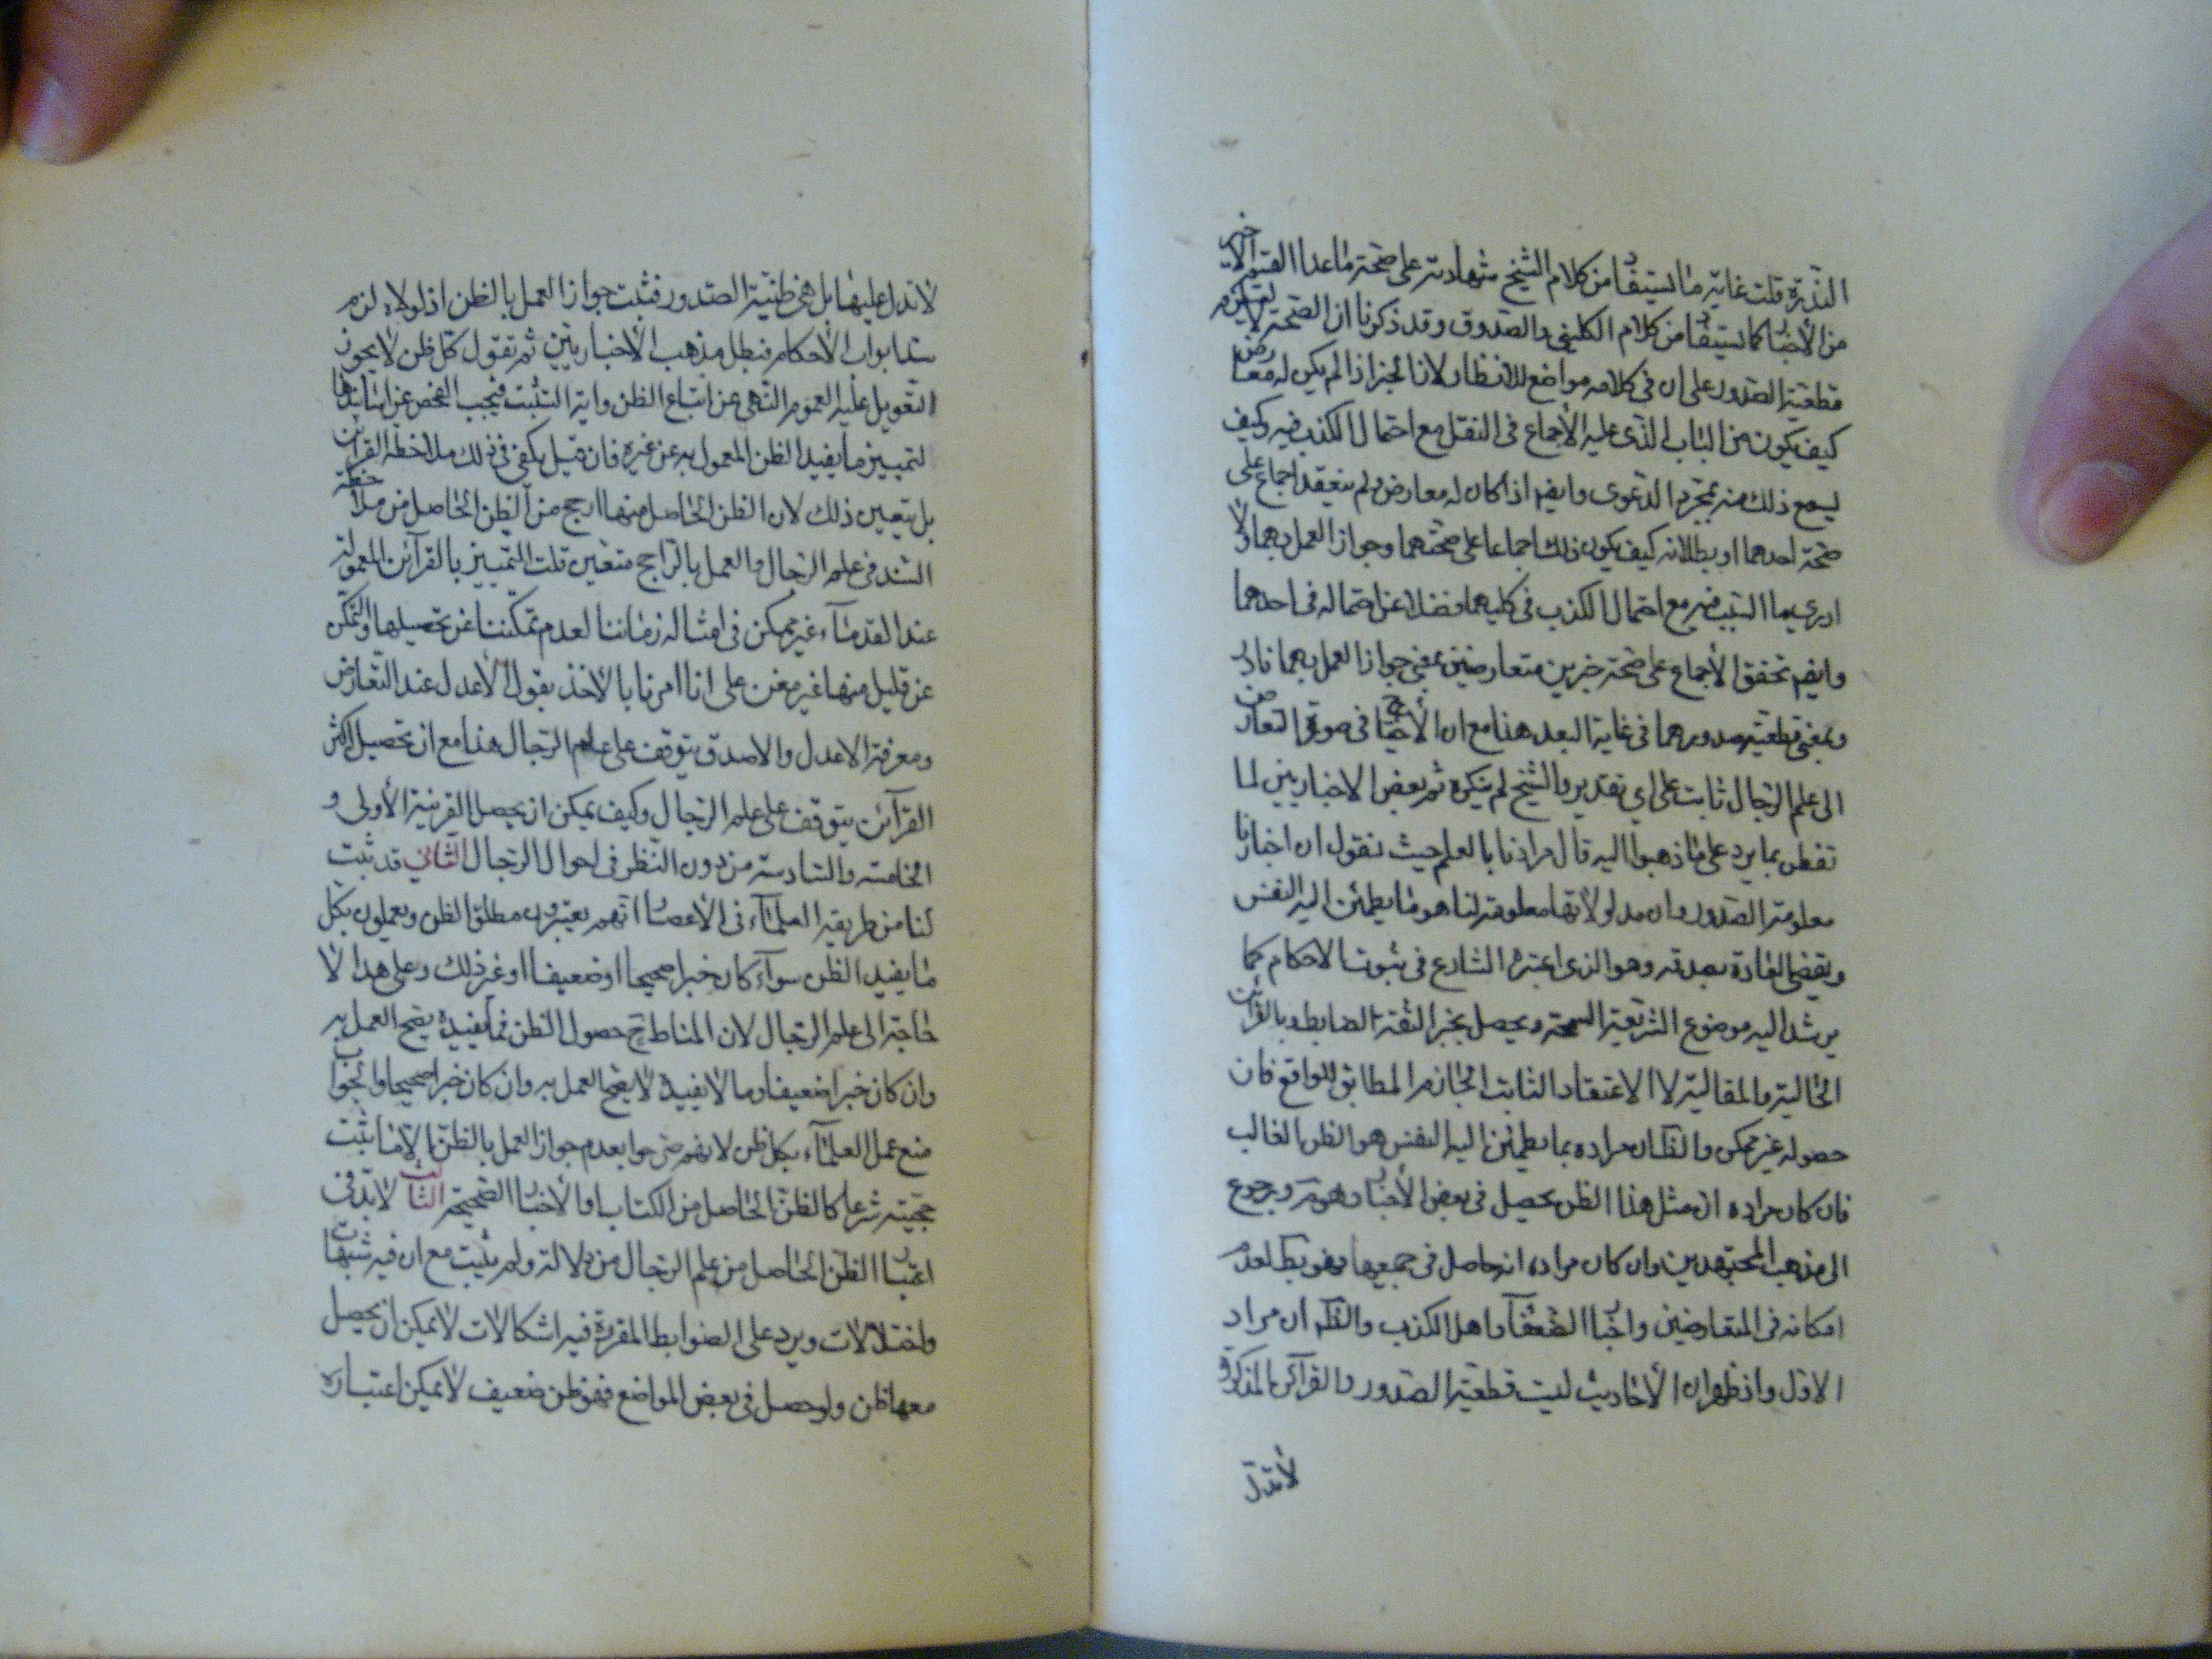 النذرة قلت غاية ما يستفاد من كلام الشيخ شهادته على صحة ما عدا القسم الاخير
من الأخبار كما يستفاد من كلام الكليني والصدوق وقد ذكرنا ان الصحة لا يستلزم
قطعية الصدور على ان في كلامه مواضع للانظار لان الخبر اذا لم يكن له معارض
كيف يكون من الباب الذي عليه الأجماع في النقل مع احتمال الكذب فيه وكيف
يسمع ذلك منه بمجرد الدعوى وايضم اذا كان له معارض ولم ينعقد اجماع على
صحة احدهما او بطلانه كيف يكون ذلك اجماعا على صحتهما وجواز العمل بهما ولا
ادري ما السبب فيه مع احتمال الكذب في كليهما فضلا عن احتماله في احدهما
وايضم تحقق الأجماع على صحة خبرين متعارضين بمعنى جواز العمل بهما نادر
وبمعنى قطعية صدورهما في غاية البعد هذا مع ان الأحتياج في صورة التعارض
الى علم الرجال ثابت على اي تقدير والشيخ لم ينكره ثم بعض الاخباريين لما
تفطن بما يرد على ما ذهبوا اليه قال مرادنا بالعلم حيث نقول ان اخبارنا
معلومة الصدور وان مدلولاتها معلومة لنا هو ما يطمئن اليه النفس
ويقضى العادة بصدقه وهو الذي اعتبره الشارع في ثبوت الاحكام كما
يرشد اليه موضوع الشريعة السمحة ويحصل بخبر الثقة الضابط وبالقرائن
الحالية والمقالية لا الاعتقاد الثابت الجازم المطابق للواقع فان
حصوله غير ممكن والظ ان مراده بما يطمئن اليه النفس هو الظن الغالب
فان كان مراده ان مثل هذا الظن يحصل في بعض الأخبار فهو مر ورجوع
الى مذهب المجتهدين وان كان مراده انه حاصل في جميعها فهو بط لعدم
امكانه في المتعارضين واخبار الضعفآء واهل الكذب والظم ان مراد
الاول واذ ظهر ان الأحاديث ليست قطعية الصدور والقرآئن المذكورة
لا تدل
لا تدل عليها بل هي ظنية الصدور فثبت جواز العمل بالظن اذ لولاه لزم
سد ابواب الأحكام فبطل مذهب الأخباريين ثم نقول كل ظن لا يجوز
التعويل عليه لعموم النهي عن اتباع الظن واية التثبت فيجب الفحص عن اسانيدها
لتمييز ما يفيد الظن المعمول به عن غيره فان قيل يكفي في ذلك ملاحظة القرائن
بل يتعين ذلك لان الظن الحاصل منها ارجح من الظن الحاصل من ملاحظة
السند في علم الرجال والعمل بالراجح متعين قلت التمييز بالقرآئن المعمولة
عند القدمآء غير ممكن في امثال زماننا لعدم تمكننا عن تحصيلها والتمكن
عن قليل منها غير مغن على انا امرنا بالأخذ بقول الأعدل عند التعارض
ومعرفة الاعدل والاصدق يتوقف على علم الرجال هذا مع ان تحصيل اكثر
القرآئن يتوقف على علم الرجال وكيف يمكن ان يحصل القرينة الأولى و
الخامسة والسادسة من دون النظر في احوال الرجال الثاني قد ثبت
لنا من طريقة العلمآء في الأعصار انهم يعتبرون مطلق الظن ويعملون بكل
ما يفيد الظن سوآء كان خبرا صحيحا او ضعيفا او غر ذلك وعلى هذا لا
حاجة الى علم الرجال لان المناط ح حصول الظن فما يفيده يصح العمل به
وان كان خبرا ضعيفا وما لا يفيده لا يصح العمل به وان كان خبرا صحيحا والجواب
منع عمل العلمآء بكل ظن لانهم صرحوا بعدم جواز العمل بالظن إلا ما ثبت
حجيته شرعا كالظن الحاصل من الكتاب والأخبار الصحيحة الثالث لا بد في
اعتبار الظن الحاصل من علم الرجال من دلالة ولم يثبت مع ان فيه شبهات
واختلالات ويرد على الضوابط المقررة فيه اشكالات لا يمكن ان يحصل
معها ظن ولو حصل في بعض المواضع فهو ظن ضعيف لا يمكن اعتباره